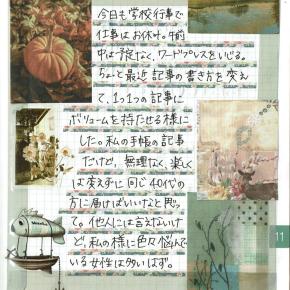 今日も学校行事で
仕事はお休み。午前
中は予定なく、ワードプレスをいじる。
ちょっと最近記事の書き方を変え
て、1つ1つの記事に
ボリュームを持たせる様に
した。私の手帳の記事
だけど、無理なく、楽しく
は変えずに同じ40代の
方に届けばいいなと思っ
て。他人には言えないけ
ど、私の様に色々悩んで
いる女性は多いはず。
11